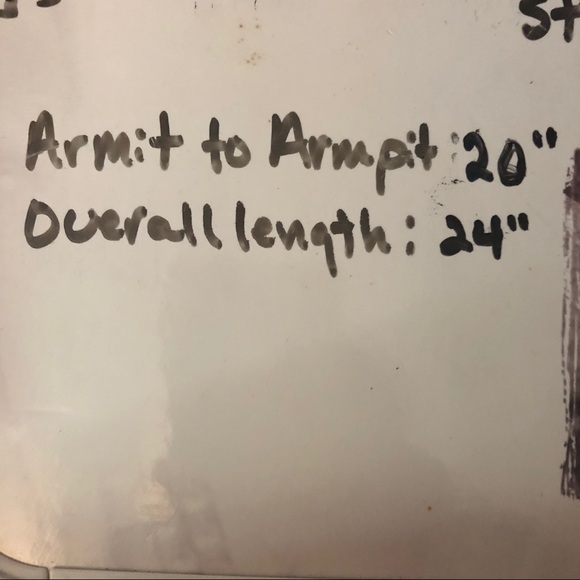 Armit to Armpit: 20"
Overall length: 24"